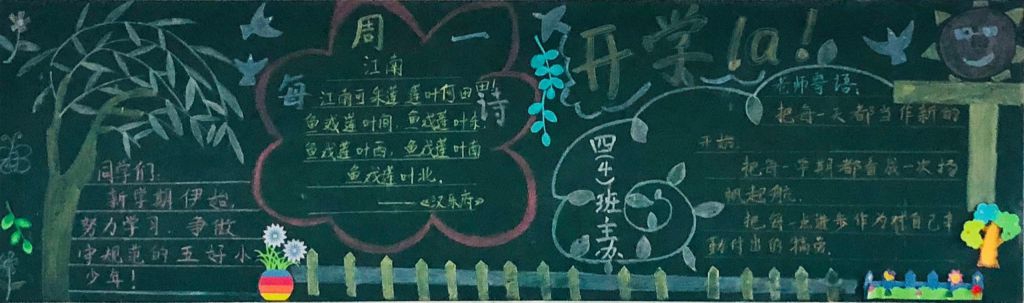 同学们:
新学期伊始,
努力学习.争做
守规范的五好小
少年!
每周一诗
江南
江南可采莲 莲叶何田田
鱼戏莲叶间.鱼戏莲叶东.
鱼戏莲叶西,鱼戏莲叶南
鱼戏莲叶北.
——《汉乐府》
开学la!
四(4)班主办
老师寄语:
把每一天都当作新的
开始.
把每一学期都看成一次扬
帆起航.
把每一点进步作为对自己辛
勤付出的犒劳.